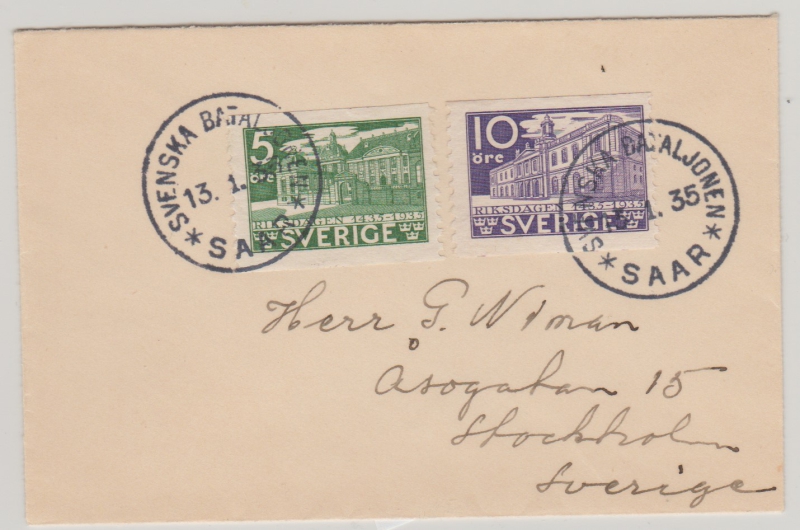 SVENSKA BATALJONEN
13. 1. 35
SAAR
5
öre
RIKSDAGEN 1435-1935
SVERIGE
10
öre
RIKSDAGEN 1435-1935
SVERIGE
SVENSKA BATALJONEN
13. 1. 35
SAAR
Herr G. Niman
Åsögatan 15
Stockholm
Sverige